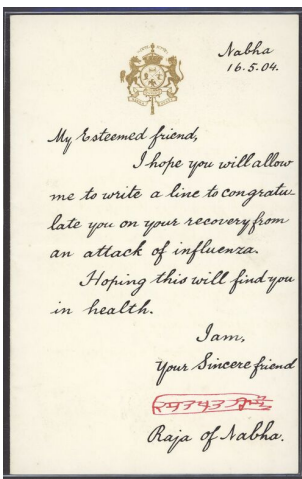 Nabha
16.5.04.
My Esteemed friend,
I hope you will allow
me to write a line to congratu
late you on your recovery from
an attack of influenza.
Hoping this will find you
in health.
I am,
Your Sincere friend
Raja of Nabha.